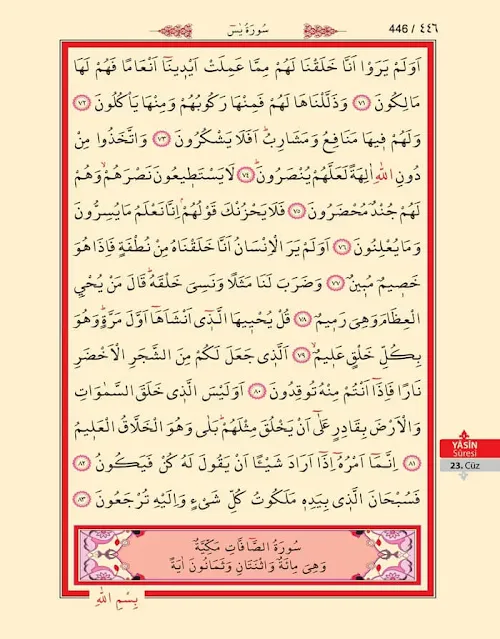 سُورَةُ يٰسٓ
446 / ٤٤٦
اَوَلَمْ يَرَوْا اَنَّا خَلَقْنَا لَهُمْ مِمَّا عَمِلَتْ اَيْدٖينَٓا اَنْعَاماً فَهُمْ لَهَا
مَالِكُونَ ﴿٧١﴾ وَذَلَّلْنَاهَا لَهُمْ فَمِنْهَا رَكُوبُهُمْ وَمِنْهَا يَأْكُلُونَ ﴿٧٢﴾
وَلَهُمْ فٖيهَا مَنَافِعُ وَمَشَارِبُۜ اَفَلَا يَشْكُرُونَ ﴿٧٣﴾ وَاتَّخَذُوا مِنْ
دُونِ اللّٰهِ اٰلِهَةً لَعَلَّهُمْ يُنْصَرُونَۜ ﴿٧٤﴾ لَا يَسْتَطٖيعُونَ نَصْرَهُمْۙ وَهُمْ
لَهُمْ جُنْدٌ مُحْضَرُونَ ﴿٧٥﴾ فَلَا يَحْزُنْكَ قَوْلُهُمْۢ اِنَّا نَعْلَمُ مَا يُسِرُّونَ
وَمَا يُعْلِنُونَ ﴿٧٦﴾ اَوَلَمْ يَرَ الْاِنْسَانُ اَنَّا خَلَقْنَاهُ مِنْ نُطْفَةٍ فَاِذَا هُوَ
خَصٖيمٌ مُبٖينٌ ﴿٧٧﴾ وَضَرَبَ لَنَا مَثَلاً وَنَسِيَ خَلْقَهُۜ قَالَ مَنْ يُحْيِ
الْعِظَامَ وَهِيَ رَمٖيمٌ ﴿٧٨﴾ قُلْ يُحْيٖيهَا الَّذٖٓي اَنْشَاَهَٓا اَوَّلَ مَرَّةٍۜ وَهُوَ
بِكُلِّ خَلْقٍ عَلٖيمٌۙ ﴿٧٩﴾ اَلَّذٖي جَعَلَ لَكُمْ مِنَ الشَّجَرِ الْاَخْضَرِ
نَاراً فَاِذَٓا اَنْتُمْ مِنْهُ تُوقِدُونَ ﴿٨٠﴾ اَوَلَيْسَ الَّذٖي خَلَقَ السَّمٰوَاتِ
وَالْاَرْضَ بِقَادِرٍ عَلٰٓى اَنْ يَخْلُقَ مِثْلَهُمْۜ بَلٰى وَهُوَ الْخَلَّاقُ الْعَلٖيمُ
﴿٨١﴾ اِنَّمَٓا اَمْرُهُٓ اِذَٓا اَرَادَ شَيْـٔاً اَنْ يَقُولَ لَهُ كُنْ فَيَكُونُ ﴿٨٢﴾
فَسُبْحَانَ الَّذٖي بِيَدِهٖ مَلَكُوتُ كُلِّ شَيْءٍ وَاِلَيْهِ تُرْجَعُونَ ﴿٨٣﴾
YÂSİN
Sûresi
23. Cüz
سُورَةُ الصَّٓافَّاتِ مَكِّيَّةٌ
وَهِيَ مِائَةٌ وَاثْنَتَانِ وَثَمَانُونَ اٰيَةً
بِسْمِ اللّٰهِ